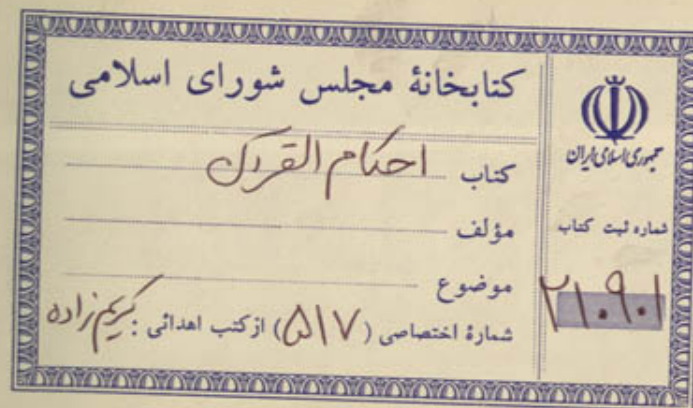 کتابخانهٔ مجلس شورای اسلامی
کتاب احکام القرآن
مؤلف
موضوع
شمارهٔ اختصاصی (۵۱۷) از کتب اهدائی : کریم‌زاده
جمهوری اسلامی ایران
شماره ثبت کتاب
۲۱۰۹۰۱